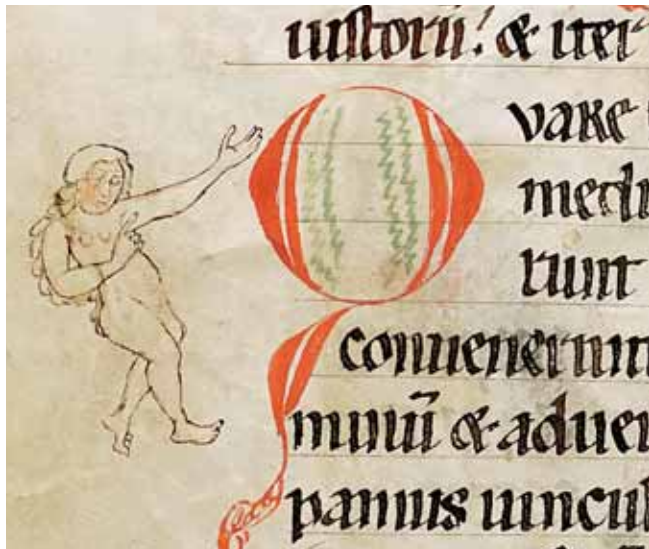 iustorū: & iter
Qvare
medi
runt
conuenerunt
minū & aduer
pamus uincul